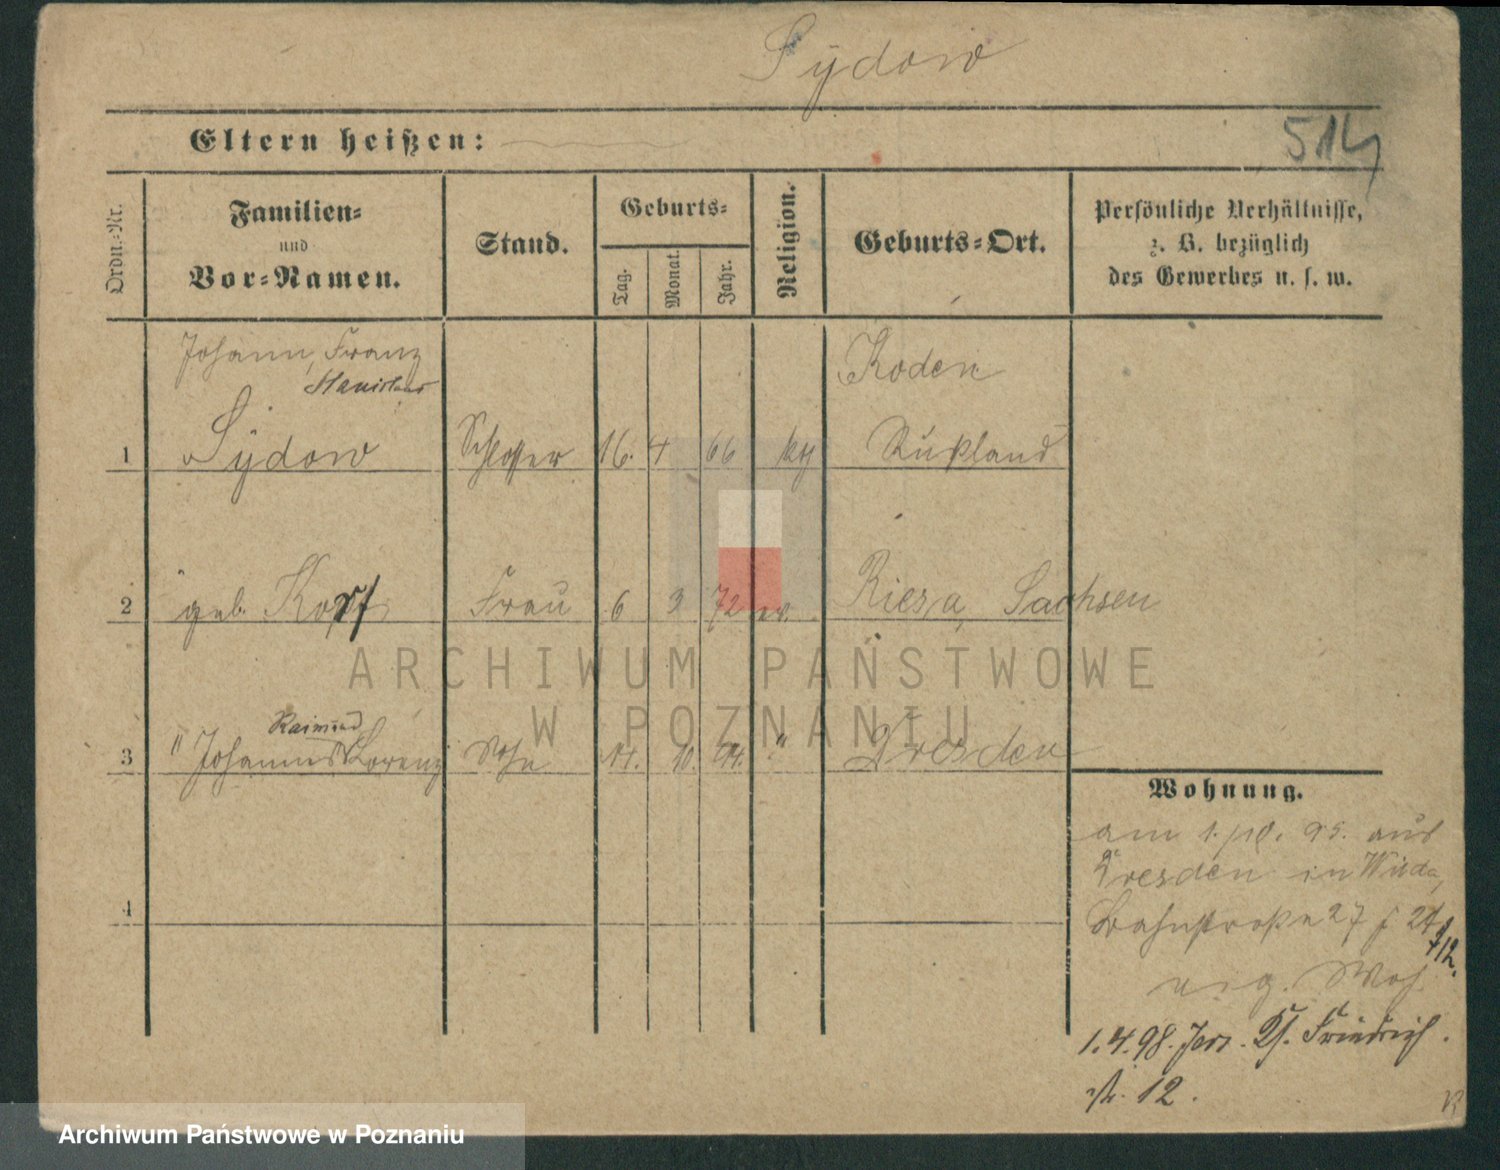 Sÿdow
Eltern heißen:
514
Ordn.-Nr.
Familien-
und
Vor-Namen.
Stand.
Geburts-
Tag.
Monat.
Jahr.
Religion.
Geburts-Ort.
Persönliche Verhältnisse,
z. B. bezüglich
des Gewerbes u. s. w.
Johann, Franz
Stanislaus
Koden
1 Sÿdow Schlosser 16. 4 66 Rußland
2 geb. Frau 6 3 72 ev. Riesa, Sachsen
Raimund
3 " Johannes Lorenz Sohn 10. 94. " Dresden
4
Wohnung.
am 1. 95. aus
Dresden in Wilda,
Bahnstraße 27
1.4.98. Jers. Friedrich
str. 12.
ARCHIWUM PAŃSTWOWE
W POZNANIU
Archiwum Państwowe w Poznaniu